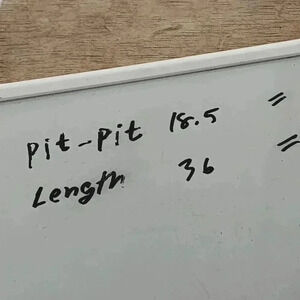 Pit-Pit 18.5 "
Length 36 "